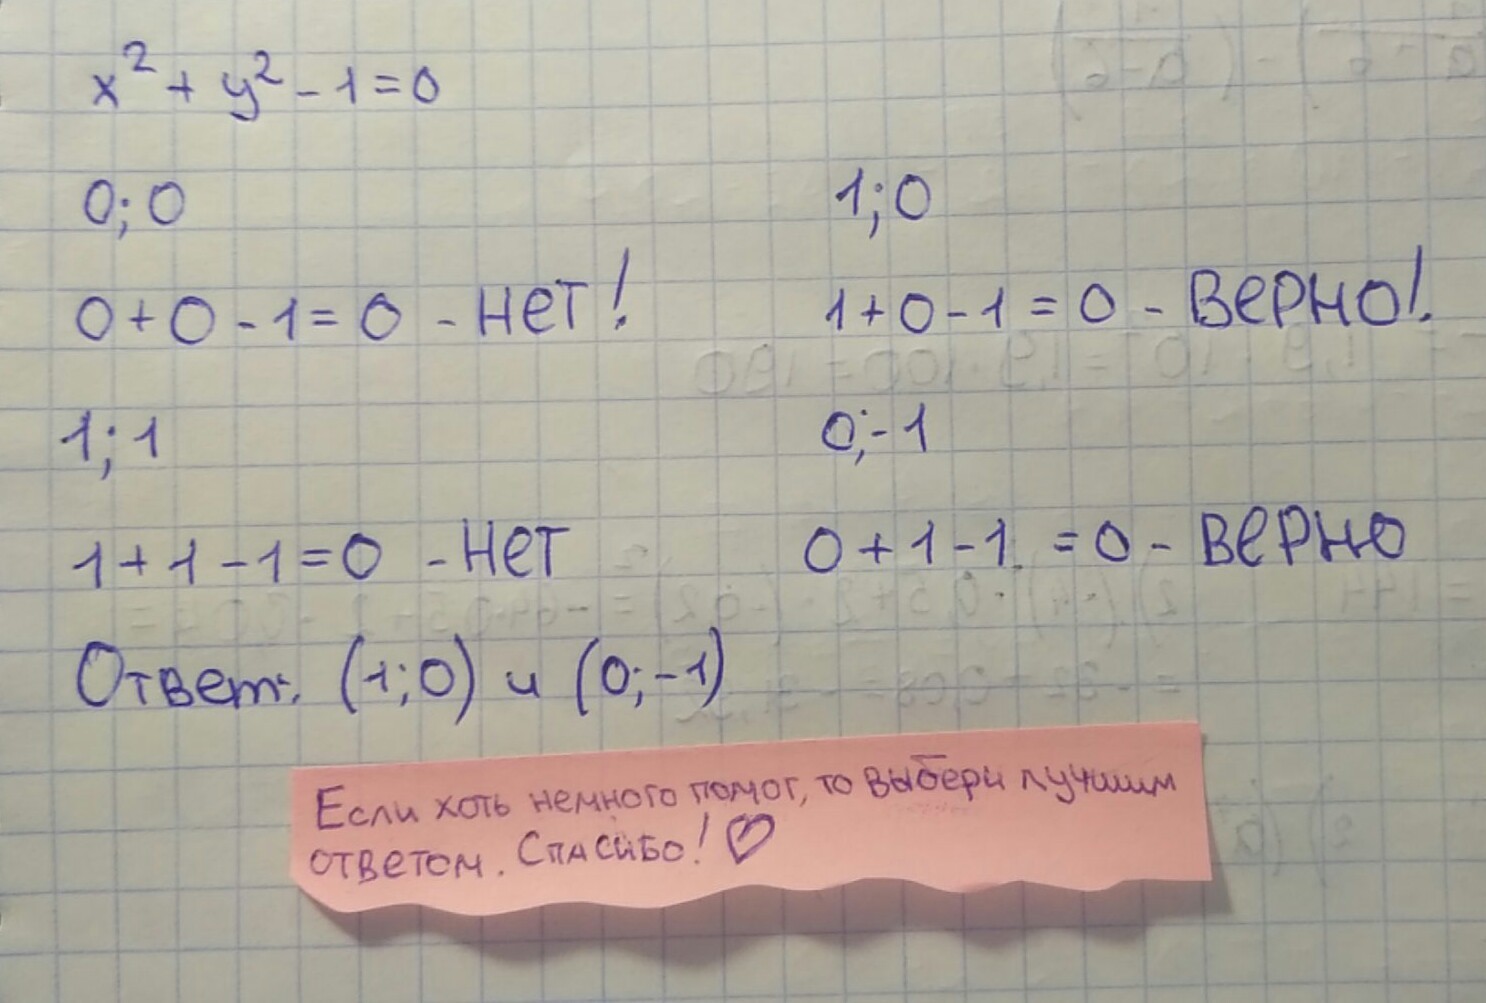 x² + y² - 1 = 0
0; 0
1; 0
0 + 0 - 1 = 0 - нет!
1 + 0 - 1 = 0 - верно!
1; 1
0; -1
1 + 1 - 1 = 0 - нет
0 + 1 - 1 = 0 - верно
Ответ: (1; 0) и (0; -1)
Если хоть немного помог, то выбери лучшим
ответом. Спасибо! ♡